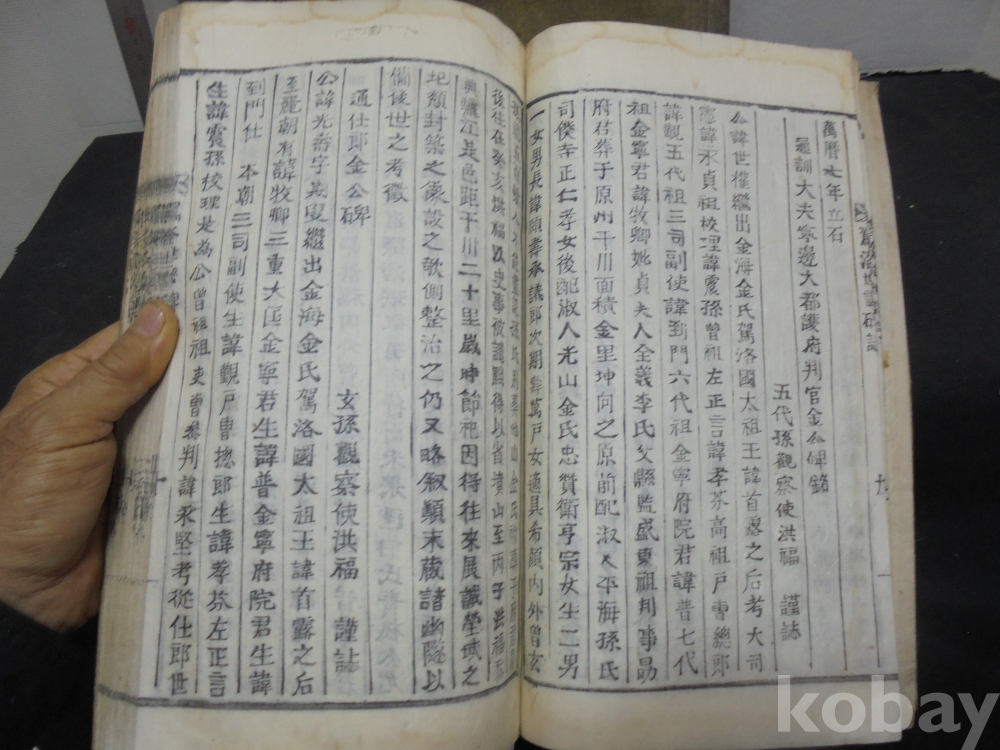 萬曆七年立石
通訓大夫寧邊大都護府判官金公碑銘
五代孫觀察使洪福 謹誌
公諱世權繼出金海金氏駕洛國太祖王諱首露之后考大司
憲諱永貞祖校理諱震孫曾祖左正言諱孝芬高祖戶曹總郎
諱觀五代祖三司副使諱到門六代祖金寧府院君諱普七代
祖金寧君諱牧卿妣貞夫人全義李氏父縣監盛東祖判事昜
府君葬于原州干川面積金里坤向之原前配淑人平海孫氏
司僕寺正仁孝女後配淑人光山金氏忠贊衛亨宗女生二男
一女男長諱順壽承議郎次期壽萬戶女適具希顏內外曾玄
後往在癸亥洪福以史事
距干川二十里歲時節祀因得往來展誠瑩域之
地頹封築之像設之欹側整治之仍又略敘顚末藏諸幽隧以
備後世之考徵
通仕郎金公碑
玄孫觀察使洪福謹誌
公諱光善字期叟繼出金海金氏駕洛國太祖王諱首露之后
至麗朝有諱牧卿三重大匡金寧君生諱普金寧府院君生諱
到門仕 本朝三司副使生諱觀戶曹摠郎生諱孝芬左正言
生諱震孫校理是為公曾祖吏曹參判諱永堅考從仕郎世
kobay